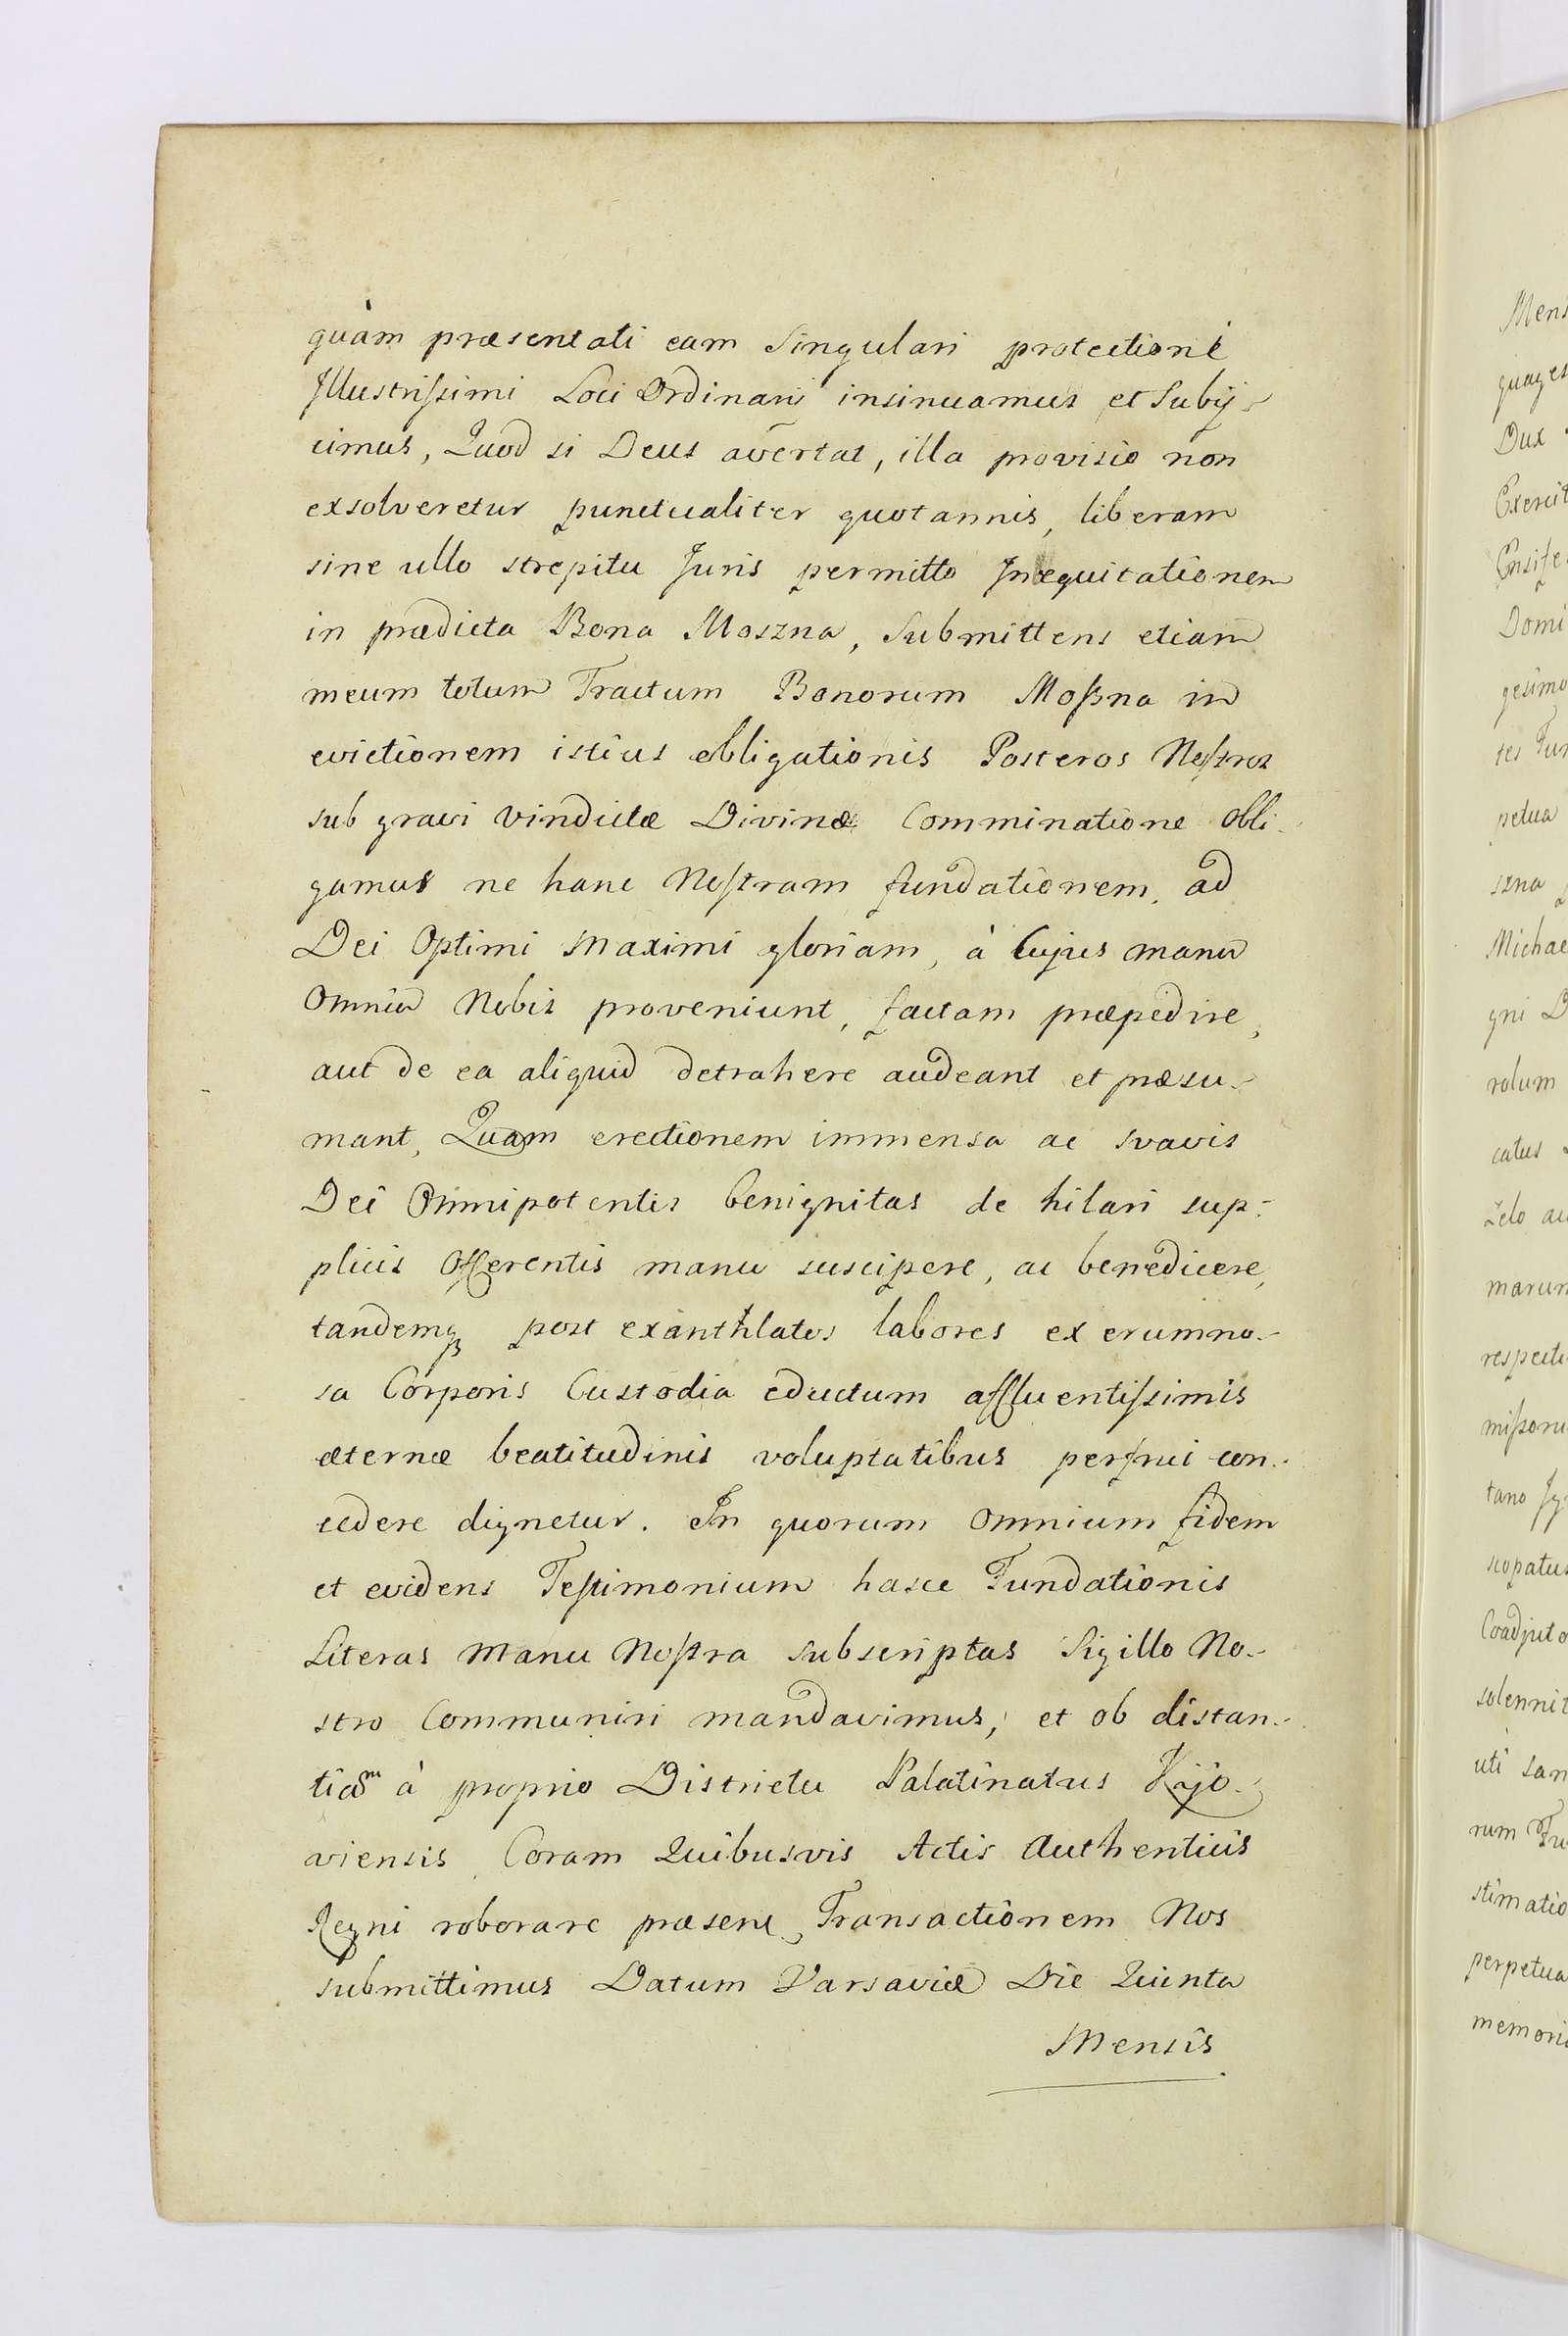 quàm præsentati eam Singulari protectioni
Illustrissimi Loci Ordinarii insinuamus et Subij-
cimus, Quod si Deus avertat, illa provisio non
exsolveretur punctualiter quotannis, liberam
sine ullo strepitu Juris permitto Inequitationem
in prædicta Bona Moszna, Submittens etiam
meum totum Tractum Bonorum Moszna in
evictionem istius obligationis Posteros Nostros
sub gravi vindictæ Divinæ Comminatione obli-
gamus ne hanc Nostram fundationem, ad
Dei Optimi Maximi gloriam, à Cujus manu
Omnia Nobis proveniunt, factam præpedire,
aut de ea aliquid detrahere audeant et præsu-
mant, Quam erectionem immensa ac svavis
Dei Omnipotentis benignitas de hilari sup-
plicis Offerentis manu suscipere, ac benedicere,
tandemq post exanthlatos labores ex erumno-
sa Corporis Custodia eductum affluentissimis
æternæ beatitudinis voluptatibus perfrui con-
cedere dignetur. In quorum Omnium fidem
et evidens Testimonium hasce Fundationis
Literas Manu Nostra Subscriptas Sigillo No-
stro Communiri mandavimus, et ob distan-
tiam à proprio Districtu Palatinatus Kijo-
viensis Coram Quibusvis Actis Authenticis
Regni roborare præsene Transactionem Nos
submittimus Datum Varsaviæ Die Quinta
Mensis
Mens
quages
Dux
Exercit
Ensife
Domi
gesimo
tes Fun
petua
szna
Michae
gni D
rolum
catus
Zelo au
marum
respecti
missoru
tano Ig
scopatus
Coadjuto
solennit
uti san
rum Fu
stimatio
perpetua
memori